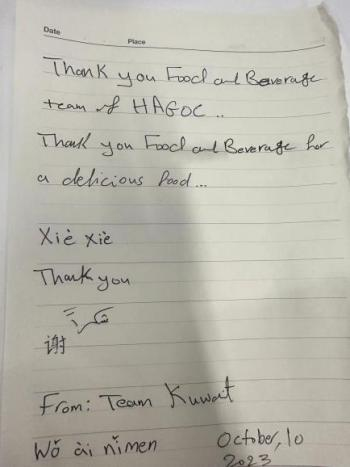 Date
Place
Thank you Food and Beverage
team of HAGOC..
Thank you Food and Beverage for
a delicious food...
Xiè xiè
Thank you
شكراً
谢
From: Team Kuwait
Wǒ ài nǐmen October, 10
2023